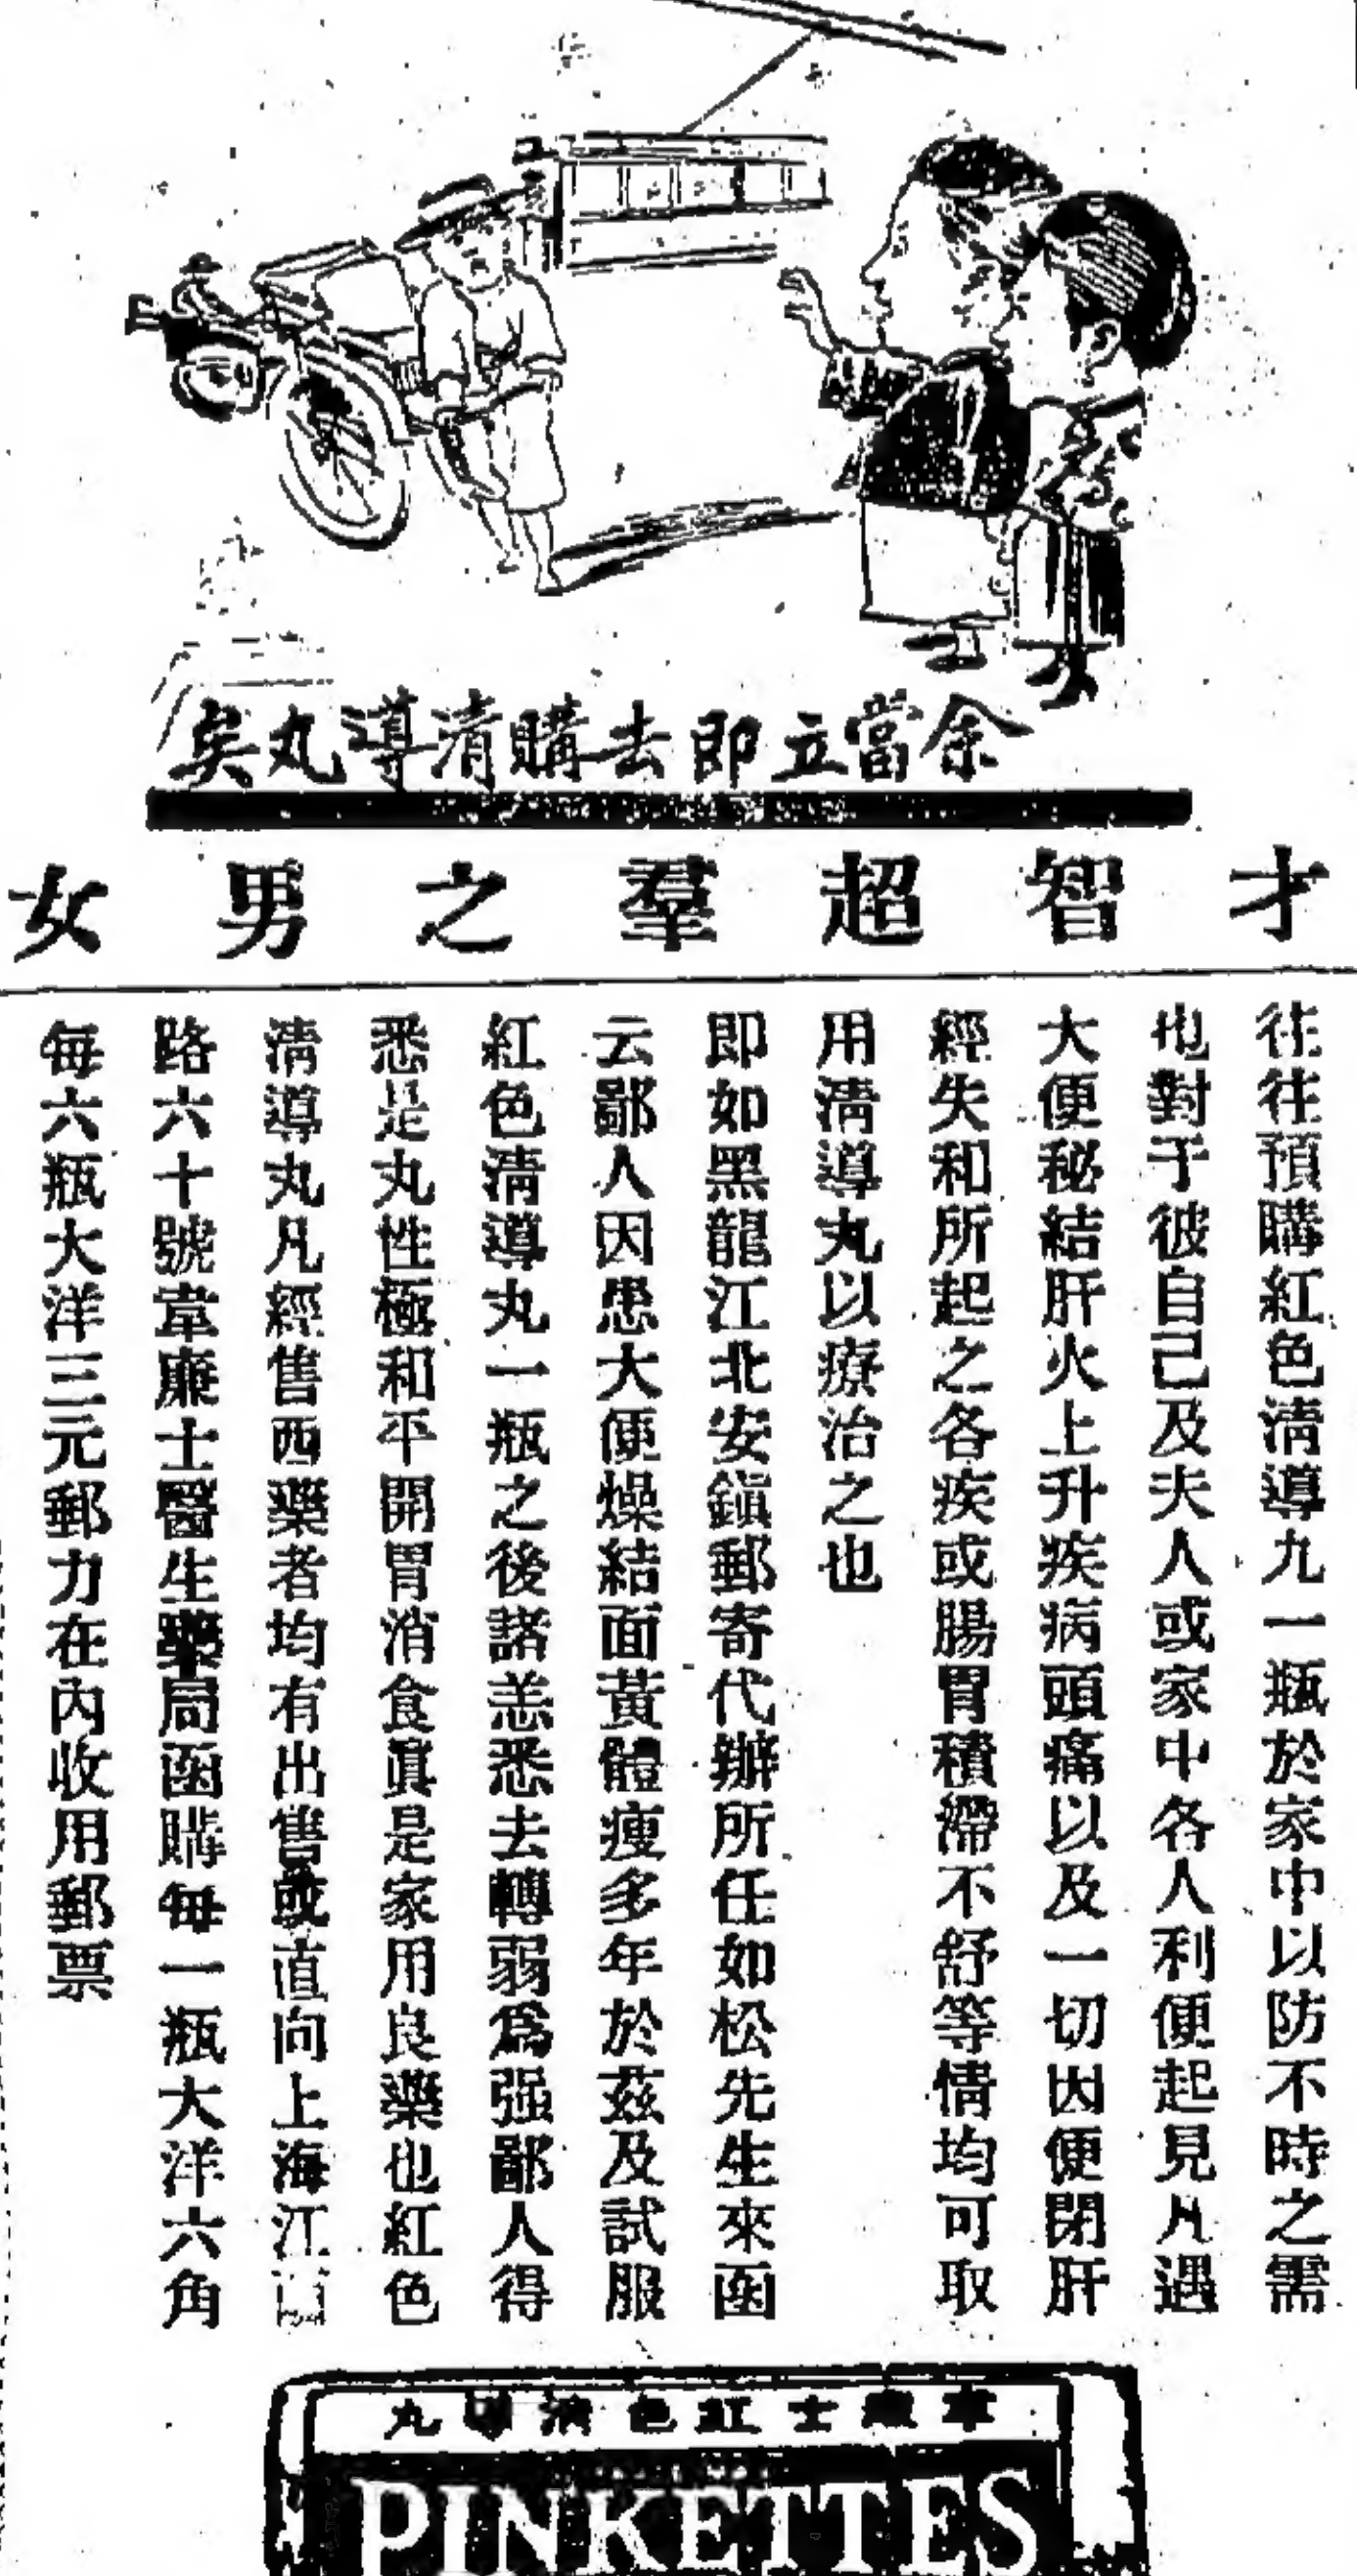 余當立即去購清導丸矣
才智超羣之男女
往往預購紅色清導九一瓶於家中以防不時之需
也對于彼自己及夫人或家中各人利便起見凡遇
大便秘結肝火上升疾病頭痛以及一切因便閉肝
經失和所起之各疾或腸胃積滯不舒等情均可取
用清導丸以療治之也
即如黑龍江北安鎮郵寄代辦所任如松先生來函
云鄙人因患大便燥結面黃體瘦多年於茲及試服
紅色清導丸一瓶之後諸恙悉去轉弱爲强鄙人得
悉是丸性極和平開胃消食眞是家用良藥也紅色
清導丸凡經售西藥者均有出售或直向上海江
路六十號韋廉士醫生藥局函購每一瓶大洋六角
每六瓶大洋三元郵力在內收用郵票
韋廉士紅色清導丸
PINKETTES